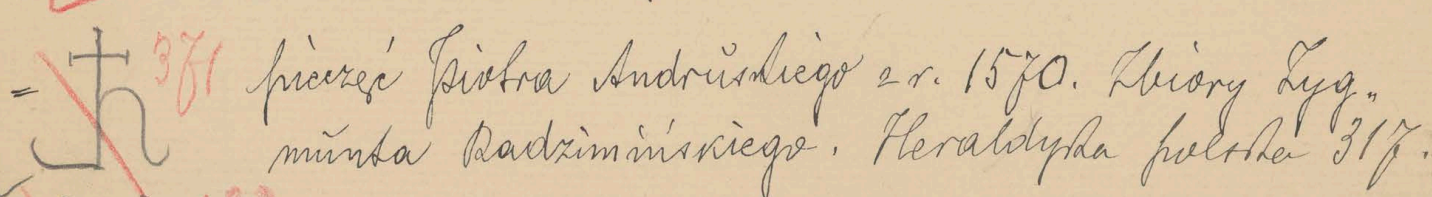 = 371 pieczęć Piotra Andruskiego z r. 1570. Zbiory Zyg„
munta Radzimińskiego. Heraldyka polska 317.